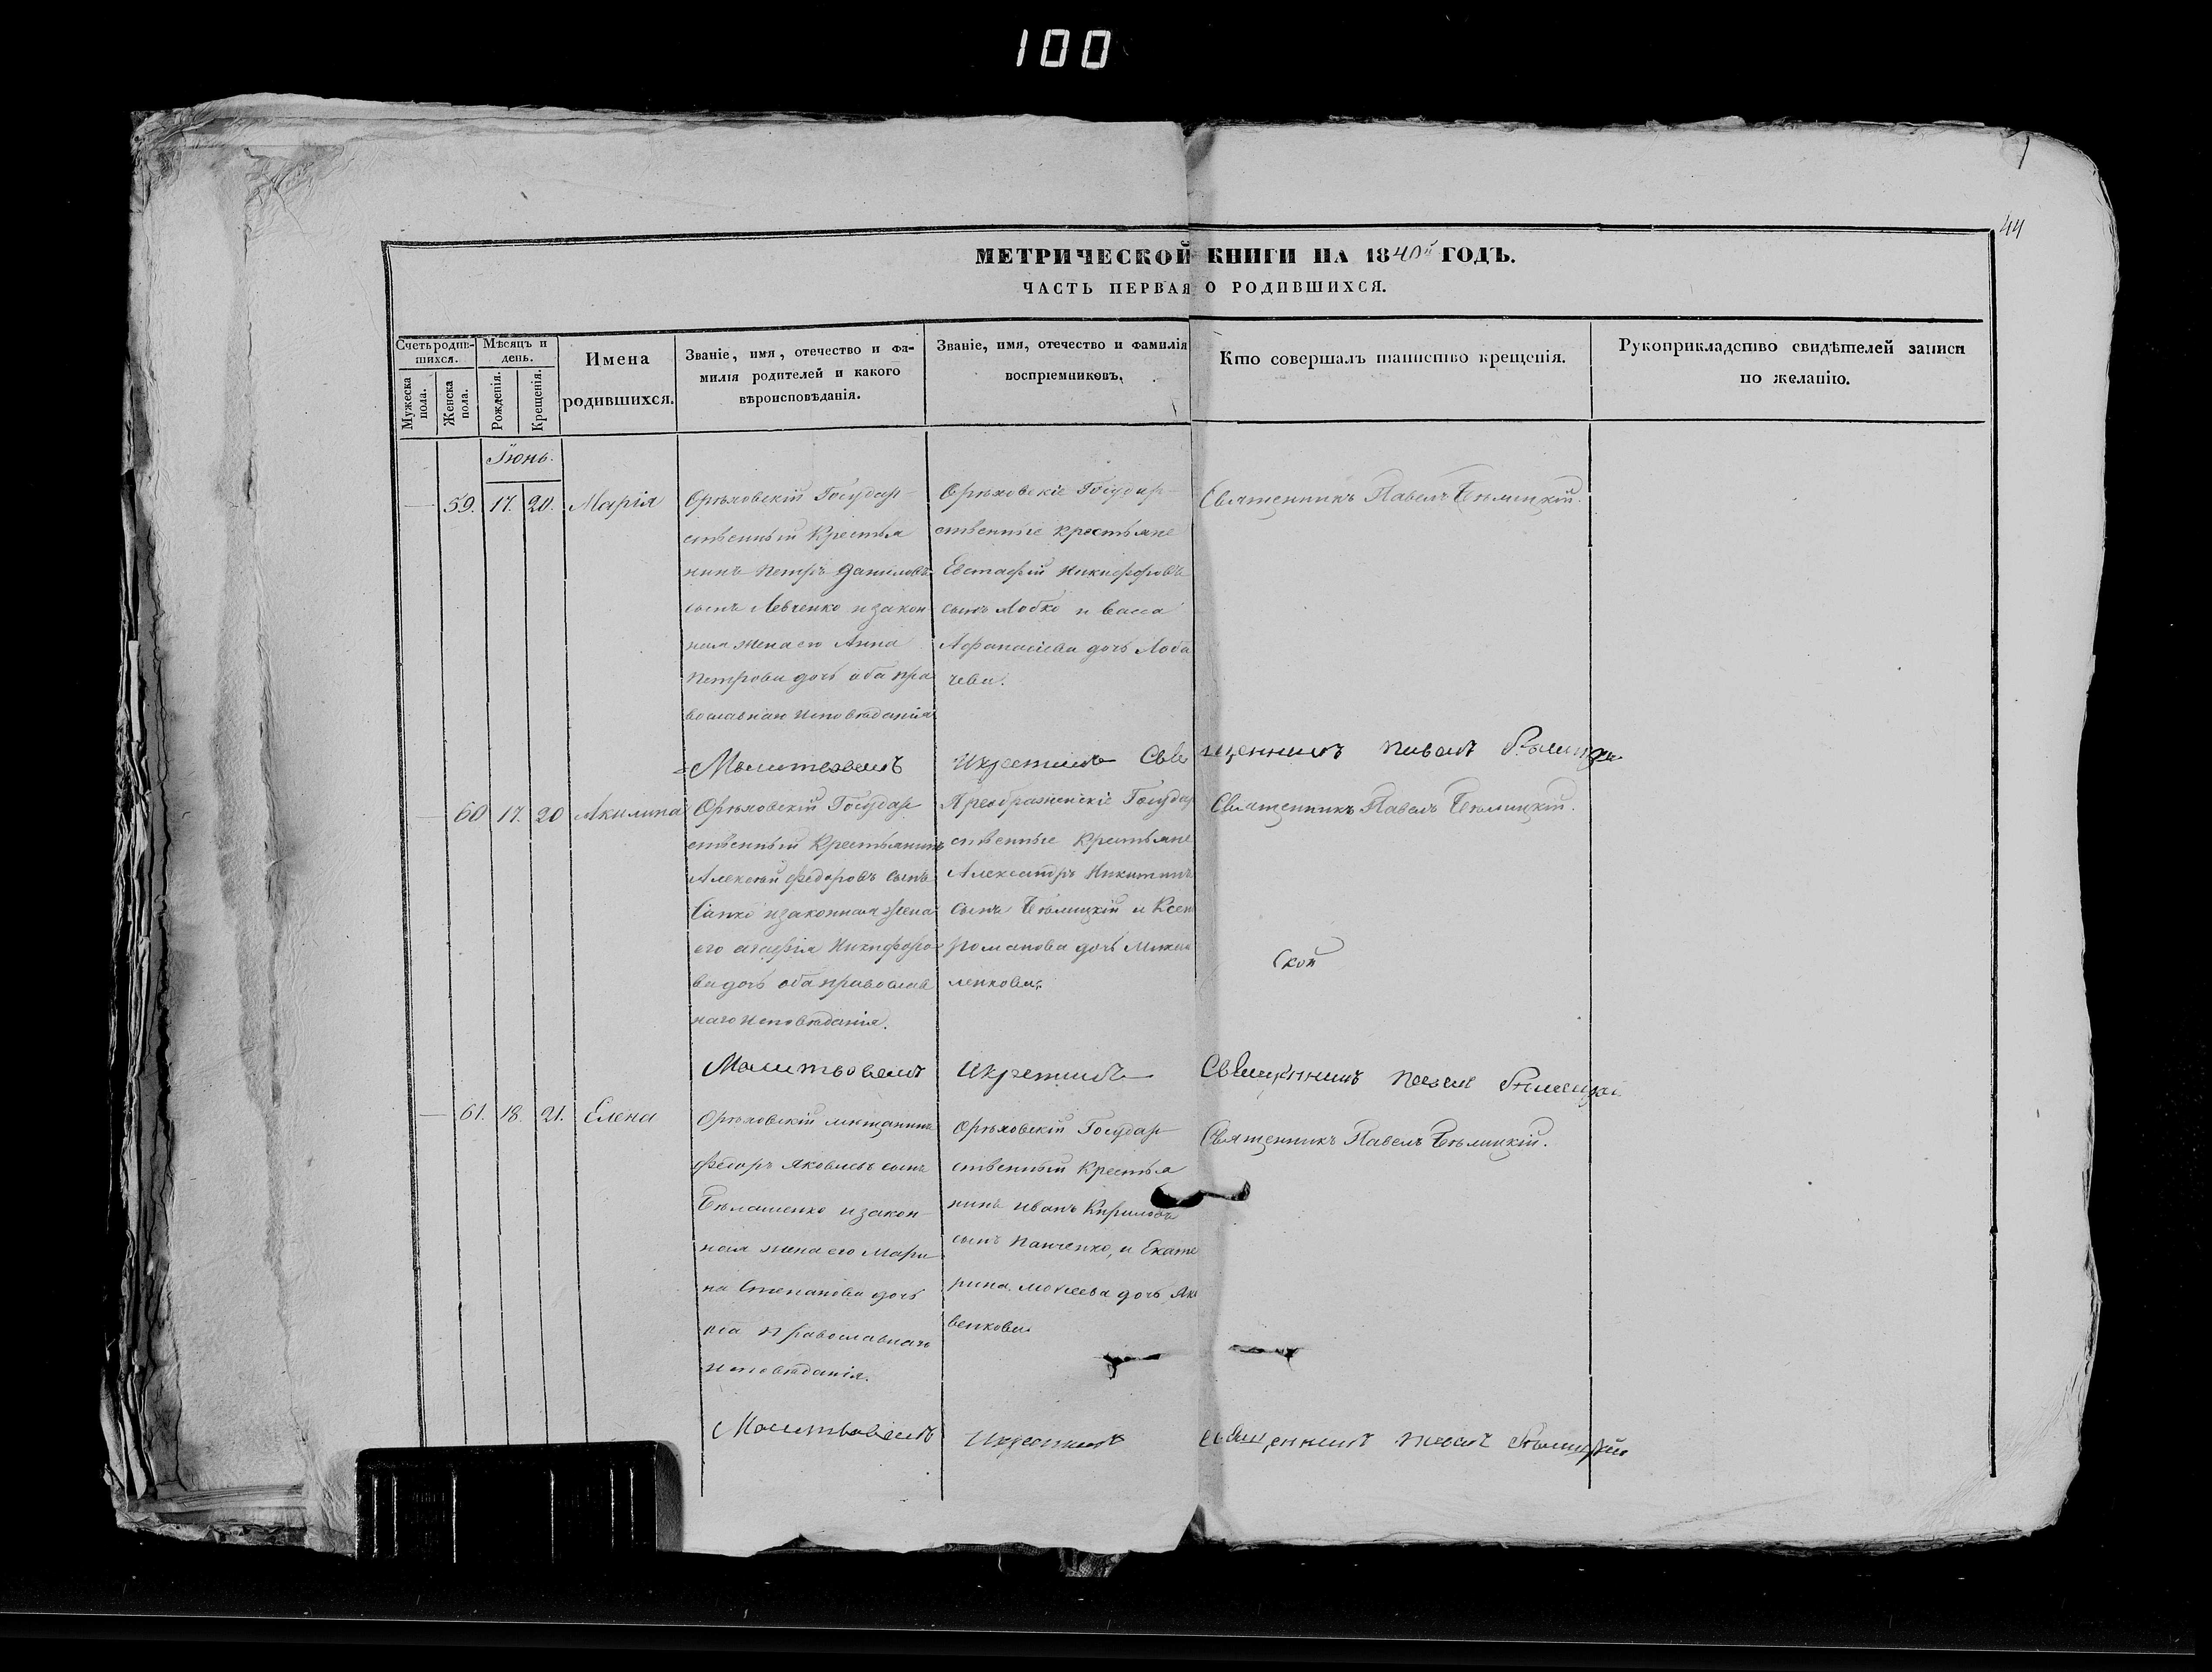 100
44
МЕТРИЧЕСКОЙ КНИГИ НА 1840й ГОДЪ.
ЧАСТЬ ПЕРВАЯ О РОДИВШИХСЯ.
Счетъ родившихся.
Мужеска пола.
Женска пола.
Мѣсяцъ и день.
Рожденія.
Крещенія.
Имена родившихся.
Званіе, имя, отечество и фа-
милія родителей и какого
вѣроисповѣданія.
Званіе, имя, отечество и фамилія
воспріемниковъ.
Кто совершалъ таинство крещенія.
Рукоприкладство свидѣтелей записи
по желанію.
Іюнь.
59. 17. 20. Марія
Орѣховскій Государ-
ственный Крестья
нинъ Петръ Даниловъ
сынъ Левченко и закон
ная жена его Анна
Петрова дочь оба пра
вославнаго исповѣданія
Орѣховскіе Государ-
ственные крестьяне
Евстафій Никифоровъ
сынъ Лобко и Васса
Афанасіева дочь Лоба
чева.
Священникъ Павелъ Бѣлицкій.
Молитвовалъ и крестилъ Священникъ Павелъ Бѣлицкій
60 17. 20 Акилина
Орѣховскій Государ
ственный Крестьянинъ
Алексѣй Федоровъ сынъ
Сапко и законная жена
его Агафія Никифоро
ва дочь оба православ
наго исповѣданія.
Преображенскіе Государ
ственные Крестьяне
Александръ Никитинъ
сынъ Бѣлицкій и Ксен
Романова дочь
ленкова.
Священникъ Павелъ Бѣлицкій.
ской
Молитвовалъ и крестилъ Священникъ Павелъ Бѣлицкій
61. 18. 21. Елена
Орѣховскій мѣщанинъ
Федоръ Яковлевъ сынъ
Бѣлашенко и закон
ная жена его Мари
на Степанова дочь
оба Православнаго
исповѣданія.
Орѣховскій Государ-
ственный Крестья
нинъ Иванъ Кириловъ
сынъ Панченко, и Екате
рина Мокеева дочь Яко
венкова.
Священникъ Павелъ Бѣлицкій.
Молитвовалъ и крестилъ Священникъ Павелъ Бѣлицкій